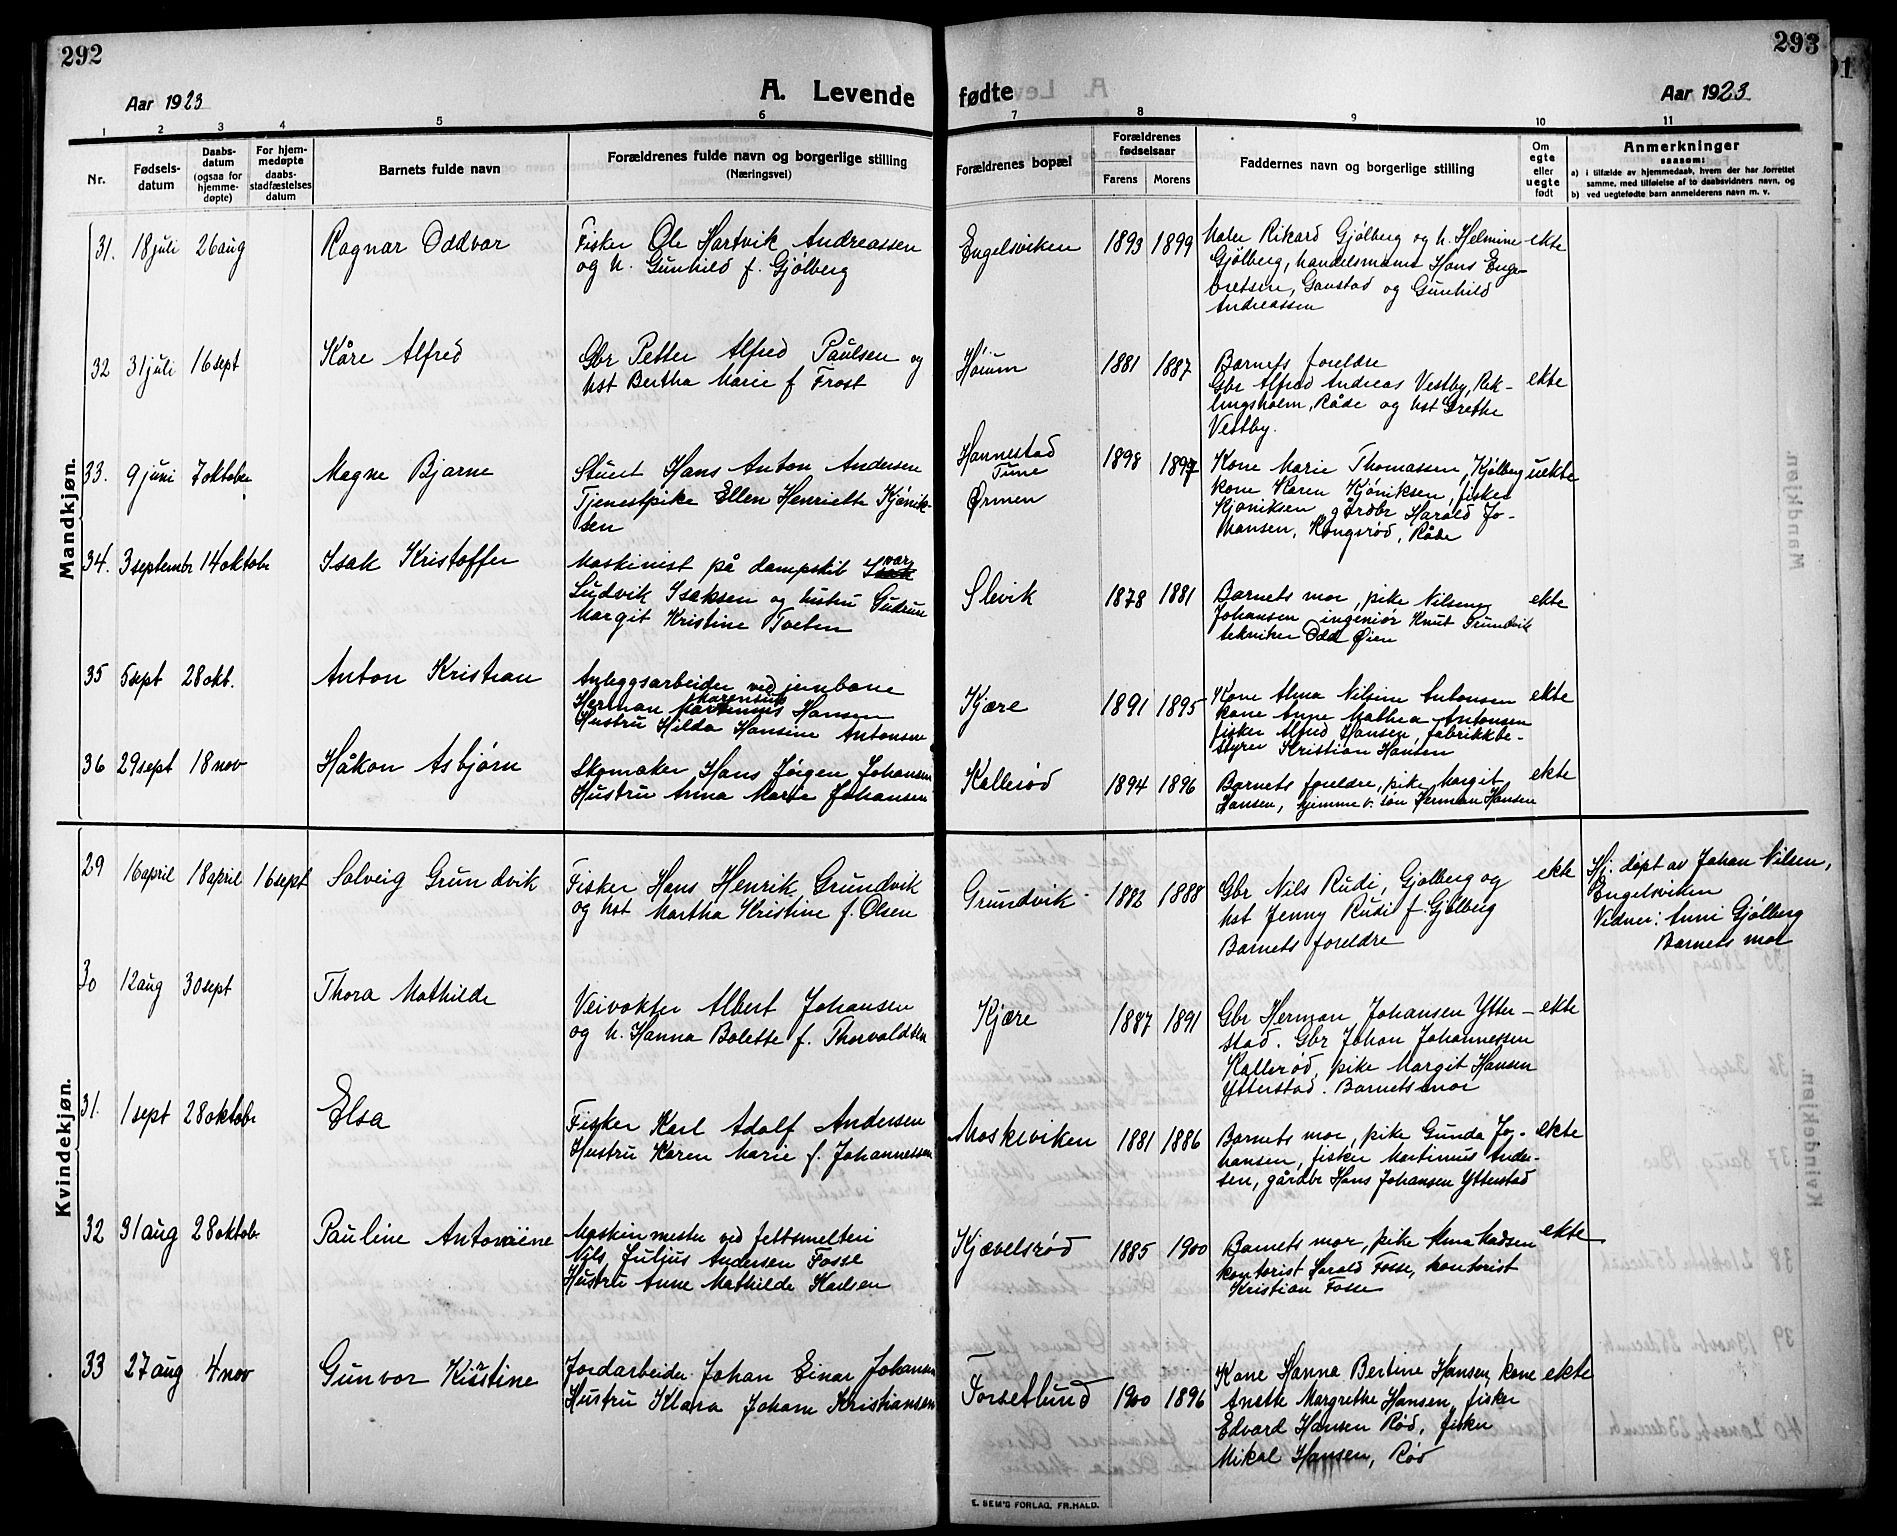 292
293
Aar 1923
A. Levende fødte
Aar 1923
1 2 3 4 5 6 7 8 9 10 11
Nr.
Fødsels-
datum
Daabs-
datum
(ogsaa for
hjemme-
døpte)
For hjem-
medøpte
daabs-
stadfæstelses
datum
Barnets fulde navn
Forældrenes fulde navn og borgerlige stilling
(Næringsvei)
Forældrenes bopæl
Forældrenes
fødselsaar
Farens Morens
Faddernes navn og borgerlige stilling
Om
egte
eller
uegte
født
Anmerkninger
saasom:
a) i tilfælde av hjemmedaab, hvem der har forrettet
samme, med tilføielse af to daabsvidners navn, og
b) ved uegtefødte barn anmelderens navn m. v.
Mandkjøn.
31. 18 juli 26 aug
Ragnar Oddvar
Fisker Ole Hartvik Andreassen
og h. Gunhild f. Gjølberg
Engelsviken
1893 1899
Maler Rikard Gjølberg og h. Helmine
Gjølberg, handelsmann Hans Enge-
bretsen, Gaustad og Gunhild
Andreassen
ekte
32 31 juli 16 sept
Kåre Alfred
Gbr Petter Alfred Paulsen og
hst Bertha Marie f Frost
Høium
1881 1887
Barnets foreldre
Gbr Alfred Andreas Vestby, Rek-
lingsholm, Råde og hst Grethe
Vestby.
ekte
33. 9 juni 7 oktober
Magne Bjarne
Stuert Hans Anton Andersen
Tjenestpike Ellen Henriette Kjønik-
sen
Hannestad
Tune
Ørmen
1898 1897
Kone Marie Thomassen, Kjølberg
kone Karen Kjøniksen, fisker
Kjøniksen, gårdbr Harald Jo-
hansen, Kongsrød, Råde
uekte
34. 3 septembr 14 oktobr
Isak Kristoffer
Maskinist på dampskib Ivar
Ludvik Isaksen og hustru Gudrun
Margit Kristine Tveten
Slevik
1878 1881
Barnets mor, pike Nilsine
Johansen ingeniør Knut Grundvik
tekniker Odd Øien
ekte
35 5 sept 28 okt.
Anton Kristian
Anleggsarbeider ved jernbane
Herman Marentius Hansen
Hustru Hilda Hansine Antonsen
Kjære
1891 1895
Kone Alma Nilsine Antonsen
kone Anne Mathea Antonsen
fisker Alfred Hansen, fabrikkbe-
styrer Kristian Hansen
ekte
36 29 sept 18 nov
Håkon Asbjørn
Skomaker Hans Jørgen Johansen
Hustru Anna Marie Johansen
Kallerød
1894 1896
Barnets foreldre, pike Margit
Hansen, hjemmev. søn Herman Hansen
ekte
Kvindekjøn.
29 16 april 18 april 16 sept
Solveig Grundvik
Fisker Hans Henrik Grundvik
og hst Martha Kristine f. Olsen
Grundvik
1882 1888
Gbr Nils Rudi, Gjølberg og
hst Jenny Rudi f. Gjølberg
Barnets foreldre
ekte
Hj. døpt av Johan Nilsen,
Engelsviken
Vidner: Anni Gjølberg
Barnets mor
30 12 aug 30 sept
Thora Mathilde
Veivokter Albert Johansen
og h. Hanna Bolette f. Thorvaldsen
Kjære
1887 1891
Gbr Herman Johansen Ytter-
stad. Gbr Johan Johannessen
Kallerød, pike Margit Hansen
Ytterstad. Barnets mor
ekte
31. 1 sept 28 oktobr
Elsa
Fisker Karl Adolf Andersen
Hustru Karen Marie f. Johannessen
Moskeviken
1881 1886
Barnets mor, pike Gunda Jo-
hansen, fisker Martinius Ander-
sen, gårdbr Hans Johansen Ytterstad
ekte
32 31 aug 28 oktobr
Pauline Antonine
Maskinmester ved fettsmelteri
Nils Julius Andersen Fosse
Hustru Anne Mathilde Karlsen
Kjævelsrød
1885 1900
Barnets mor, pike Alma Madsen
kontorist Harald Fosse, kontorist
Kristian Fosse
ekte
33 27 aug 4 nov
Gunvor Kirstine
Jordarbeider Johan Einar Johansen
Hustru Klara Johane Kristiansen
Torsetlund
1900 1896
Kone Hanna Bertine Hansen, kone
Anette Margrethe Hansen, fisker
Edvard Hansen Rød, fisker
Mikal Hansen, Rød
ekte
E. SEM'S FORLAG, FR.HALD.